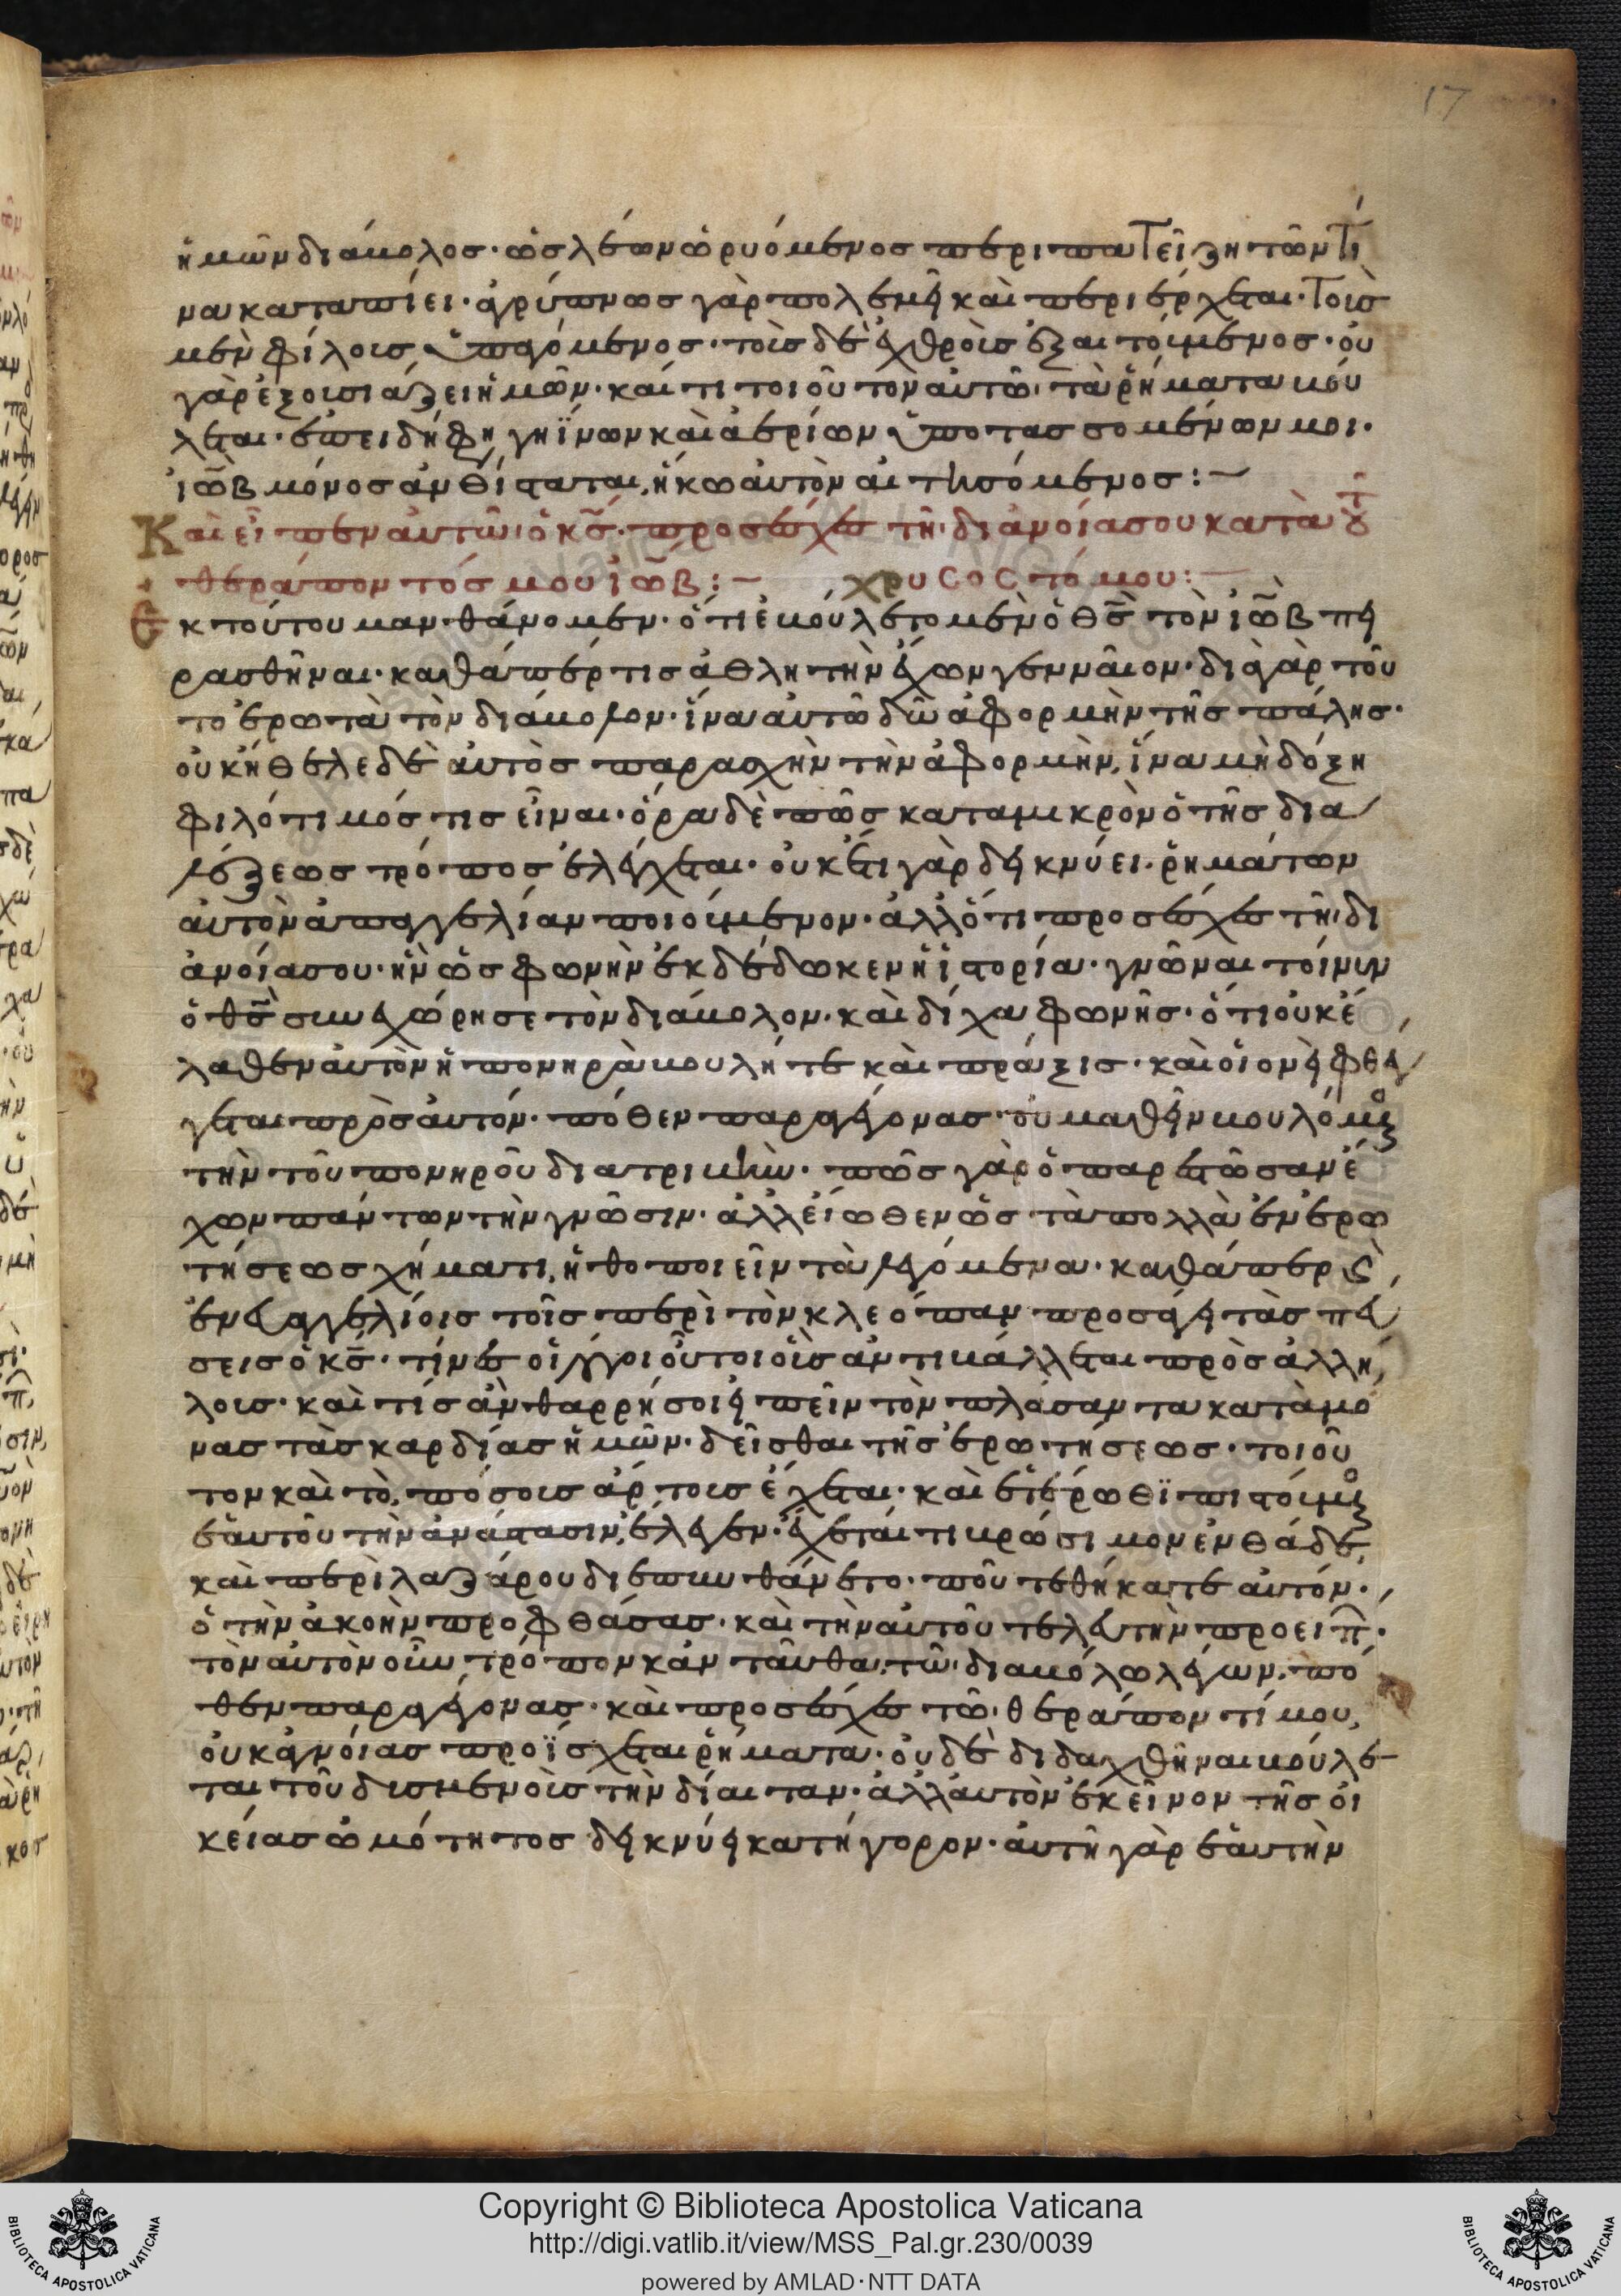 17
ἡμῶν διάβολος· ὡς λέων ὠρυόμενος περιπατεῖ ζητῶν τί
να καταπίει· ἀγρύπνως γὰρ πολεμεῖ καὶ περιέρχεται· τοῖς
μὲν φίλοις
γὰρ ἐξουσιάζει ἡμῶν· καί τι τοιοῦτον αὐτῶ· τὰ ῥήματα βού
λεται· ἐπειδὴ φη γηΐνων καὶ ἀερίων ὑποτασσομένων μοι·
ἰὼβ μόνος ἀνθίσταται, ἥκω αὐτὸν αἰτησόμενος:~
Καὶ εἶπεν αὐτῶ ὁ κς̄· προσέσχες τῆ διανοίασου κατὰ τοῦ
θεράποντός μου ἰὼβ:~ χρυσοστόμου:~
Ἐκ τούτου μανθάνομεν· ὅτι ἐβούλετο μὲν ὁ θς̄ τὸν ἰὼβ πει
ρασθῆναι· καθάπέρ τις ἀθλητὴν ἔχων γενναῖον· διὰ γὰρ τοῦ
το ἐρωτᾶ τὸν διάβολον· ἵνα αὐτῶ δῶ ἀφορμὴν τῆς πάλης·
οὐκ ἤθελε δὲ αὐτὸς παρασχεῖν τὴν ἀφορμὴν, ἵνα μὴ δόξη
φιλότιμός τις εἶναι· ὅρα δὲ πῶς καταμικρὸν ὁ τῆς δια
λέξεως τρόπος ἐλέγχεται· οὐκέτι γὰρ δεικνύει· ῥημάτων
αὐτὸν ἀπαγγελίαν ποιούμενον· ἀλλ' ὅτι προσέσχες τῆ δι
ανοίασου· ἣν ὡς φωνὴν ἐκδέδωκεν ἡ ἱστορία· γνῶναι τοίνυν
ὁ θς̄ συνεχώρησε τὸν διάβολον· καὶ δίχα φωνῆς· ὅτι οὐκ ἔ
λαθεν αὐτὸν ἡ πονηρὰ βουλή τε καὶ πράξις· καὶ οἱονεὶ φθέγ
γεται πρὸς αὐτόν· πόθεν παραγέγονας· οὐ μαθεῖν βουλόμεν
τὴν τοῦ πονηροῦ διατριβὴν· πῶς γὰρ ὁ παρ ἑτῶς ἀνέ
χων πάντων τὴν γνῶσιν· ἀλλ' εἴωθεν ὡς τὰ πολλὰ ἐν ἐρω
τήσεως χήματι, ἠθοποιεῖν τὰ λεγόμενα· καθάπερ
ἐν εὐαγγελίοις τοῖς περὶ τὸν κλεόπαν προσάγει τὰς πεύ
σεις ὁ κς̄· τίνες οἱ λόγοι οὗτοι οὓς ἀντιβάλλεται πρὸς ἀλλή
λους· καὶ τίς ἂν θαρρήσοι εἰπεῖν τὸν πλάσαντα καταμό
νας τὰς καρδίας ἡμῶν· δεῖσθαι τῆς ἐρωτήσεως· τοιοῦ
τον καὶ τὸ, πόσους ἄρτους ἔχεται· καὶ ἑτέρωθι πιστούμεν
ἑαυτοῦ τὴν ἀνάστασιν, ἔλεγεν· ἔχεταί τι βρώσιμον ἐνθάδε,
καὶ περὶ λαζάρου διεπυνθάνετο· ποῦ τεθήκατε αὐτόν·
ὁ τὴν ἀκοὴν προφθάσας· καὶ τὴν αὐτοῦ τελευτὴν προειπ·
τὸν αὐτὸν οὖν τρόπον κἀνταῦθα, τῶ διαβόλω λέγων· πό
θεν παραγέγονας· καὶ προσέσχες τῶ θεράποντί μου,
οὐκ ἀγνοίας προΐσχεται ῥήματα· οὐδὲ διδαχθῆναι βούλε
ται τοῦ δυσμενοῦς τὴν δίαιταν· ἀλλ' αὐτὸν ἐκεῖνον τῆς οἰ
κείας ὠμότητος δεικνύει κατήγορον· αὐτὴ γὰρ ἑαυτὴν
Copyright © Biblioteca Apostolica Vaticana
http://digi.vatlib.it/view/MSS_Pal.gr.230/0039
powered by AMLAD·NTT DATA
BIBLIOTECA APOSTOLICA VATICANA
BIBLIOTECA APOSTOLICA VATICANA